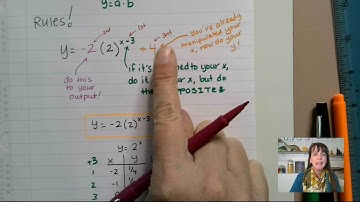 Rules!
y = a·b
2nd
1st
3rd
y = -2(2)^x-3 + 4
you've already
manipulated your
x, now do your
y!
do this
to your
output!
if it's to your x,
do it your x, but do
the OPPOSITE
y = -2(2)^x-3
y = 2^x
+3 x y
1 -2 1/4
2 -1
3